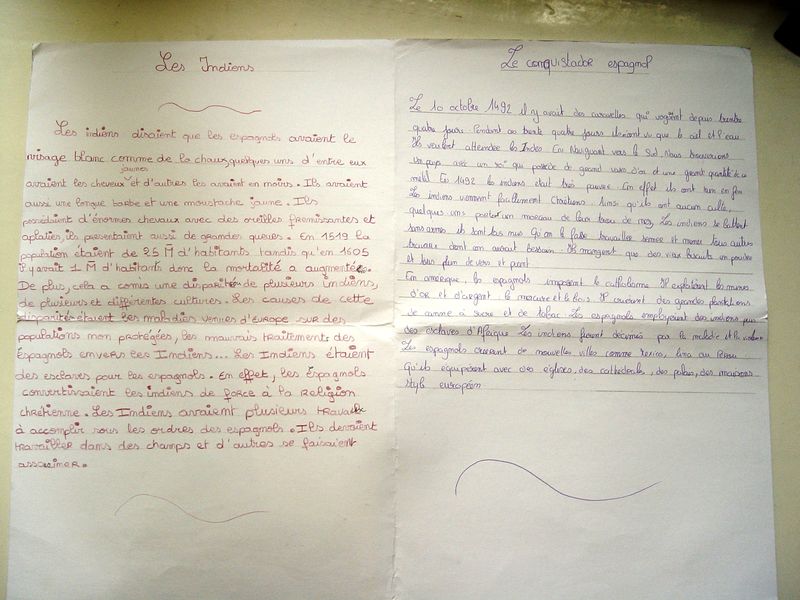 Les Indiens
Les indiens disaient que les espagnols avaient le
visage blanc comme de la chaux, quelques uns d'entre eux
jaunes
avaient les cheveux et d'autres les avaient en moirs. Ils avaient
aussi une longue barbe et une moustache jaune. Ils
possédaient d'énormes chevaux avec des oreilles fremissantes et
aplaties, ils presentaient aussi de grandes queues. En 1519 la
population étaient de 25 M d'habitants tandis qu'en 1605
il y avait 1 M d'habitants donc la mortalité a augmentée.
De plus, cela a comis une disparité de plusieurs Indiens,
de plusieurs et différentes cultures. Les causes de cette
disparités étaient les maladies venues d'Europe sur des
populations mon protégées, les mauvais traitements des
Espagnols envers les Indiens... Les Indiens étaient
des esclaves pour les espagnols. En effet, les Espagnols
convertissaient les indiens de force à la religion
chrétienne. Les Indiens avaient plusieurs travaux
à accomplir sous les ordres des espagnols. Ils devaient
travailler dans des champs et d'autres se faisaient
assasiner.
Le conquistador espagnol
Le 10 octobre 1492 il y avait des caravelles qui voguent depuis trente
quatre jours. Pendant ces trente quatre jours ils n'ont vu que le ciel et l'eau.
Ils veulent atteindre les Indes. En Naviguant vers le Sud, Nous trouverions
un pays avec un roi qui possède de grand vases d'or et une grant quantité de ce
métal. En 1492 les indiens était très pauvre. En effet ils ont rien en fer.
Les indiens viennent facilement Chrétiens. Ainsi qu'ils ont aucun culte,
quelques uns porter un morceau de dans trou de nez. Les indiens se battent
sans armes ils sont tous nus. Qu'on le fasse travailler semer et mener tous autres
travaux dont on aurait besoin. Ils mangent que des vieux biscuits en poudre
et tous plein de vers et puent
En amerique, les espagnols imposent le catholisme. Il exploitèrent les mines
d'or et d'argent, le mercure et le bois. Il creerent des grandes plantations
de canne à sucre et de tabac. Les espagnols employaient des indiens puis
des esclaves d'Afrique. Les indiens furent décimés par la maladie et la violence
Les espagnols creerent de nouvelles villes comme Mexico, Lima au Pérou.
Qu'ils equiperent avec des eglises, des cathédrales, des palais, des maisons
style européen